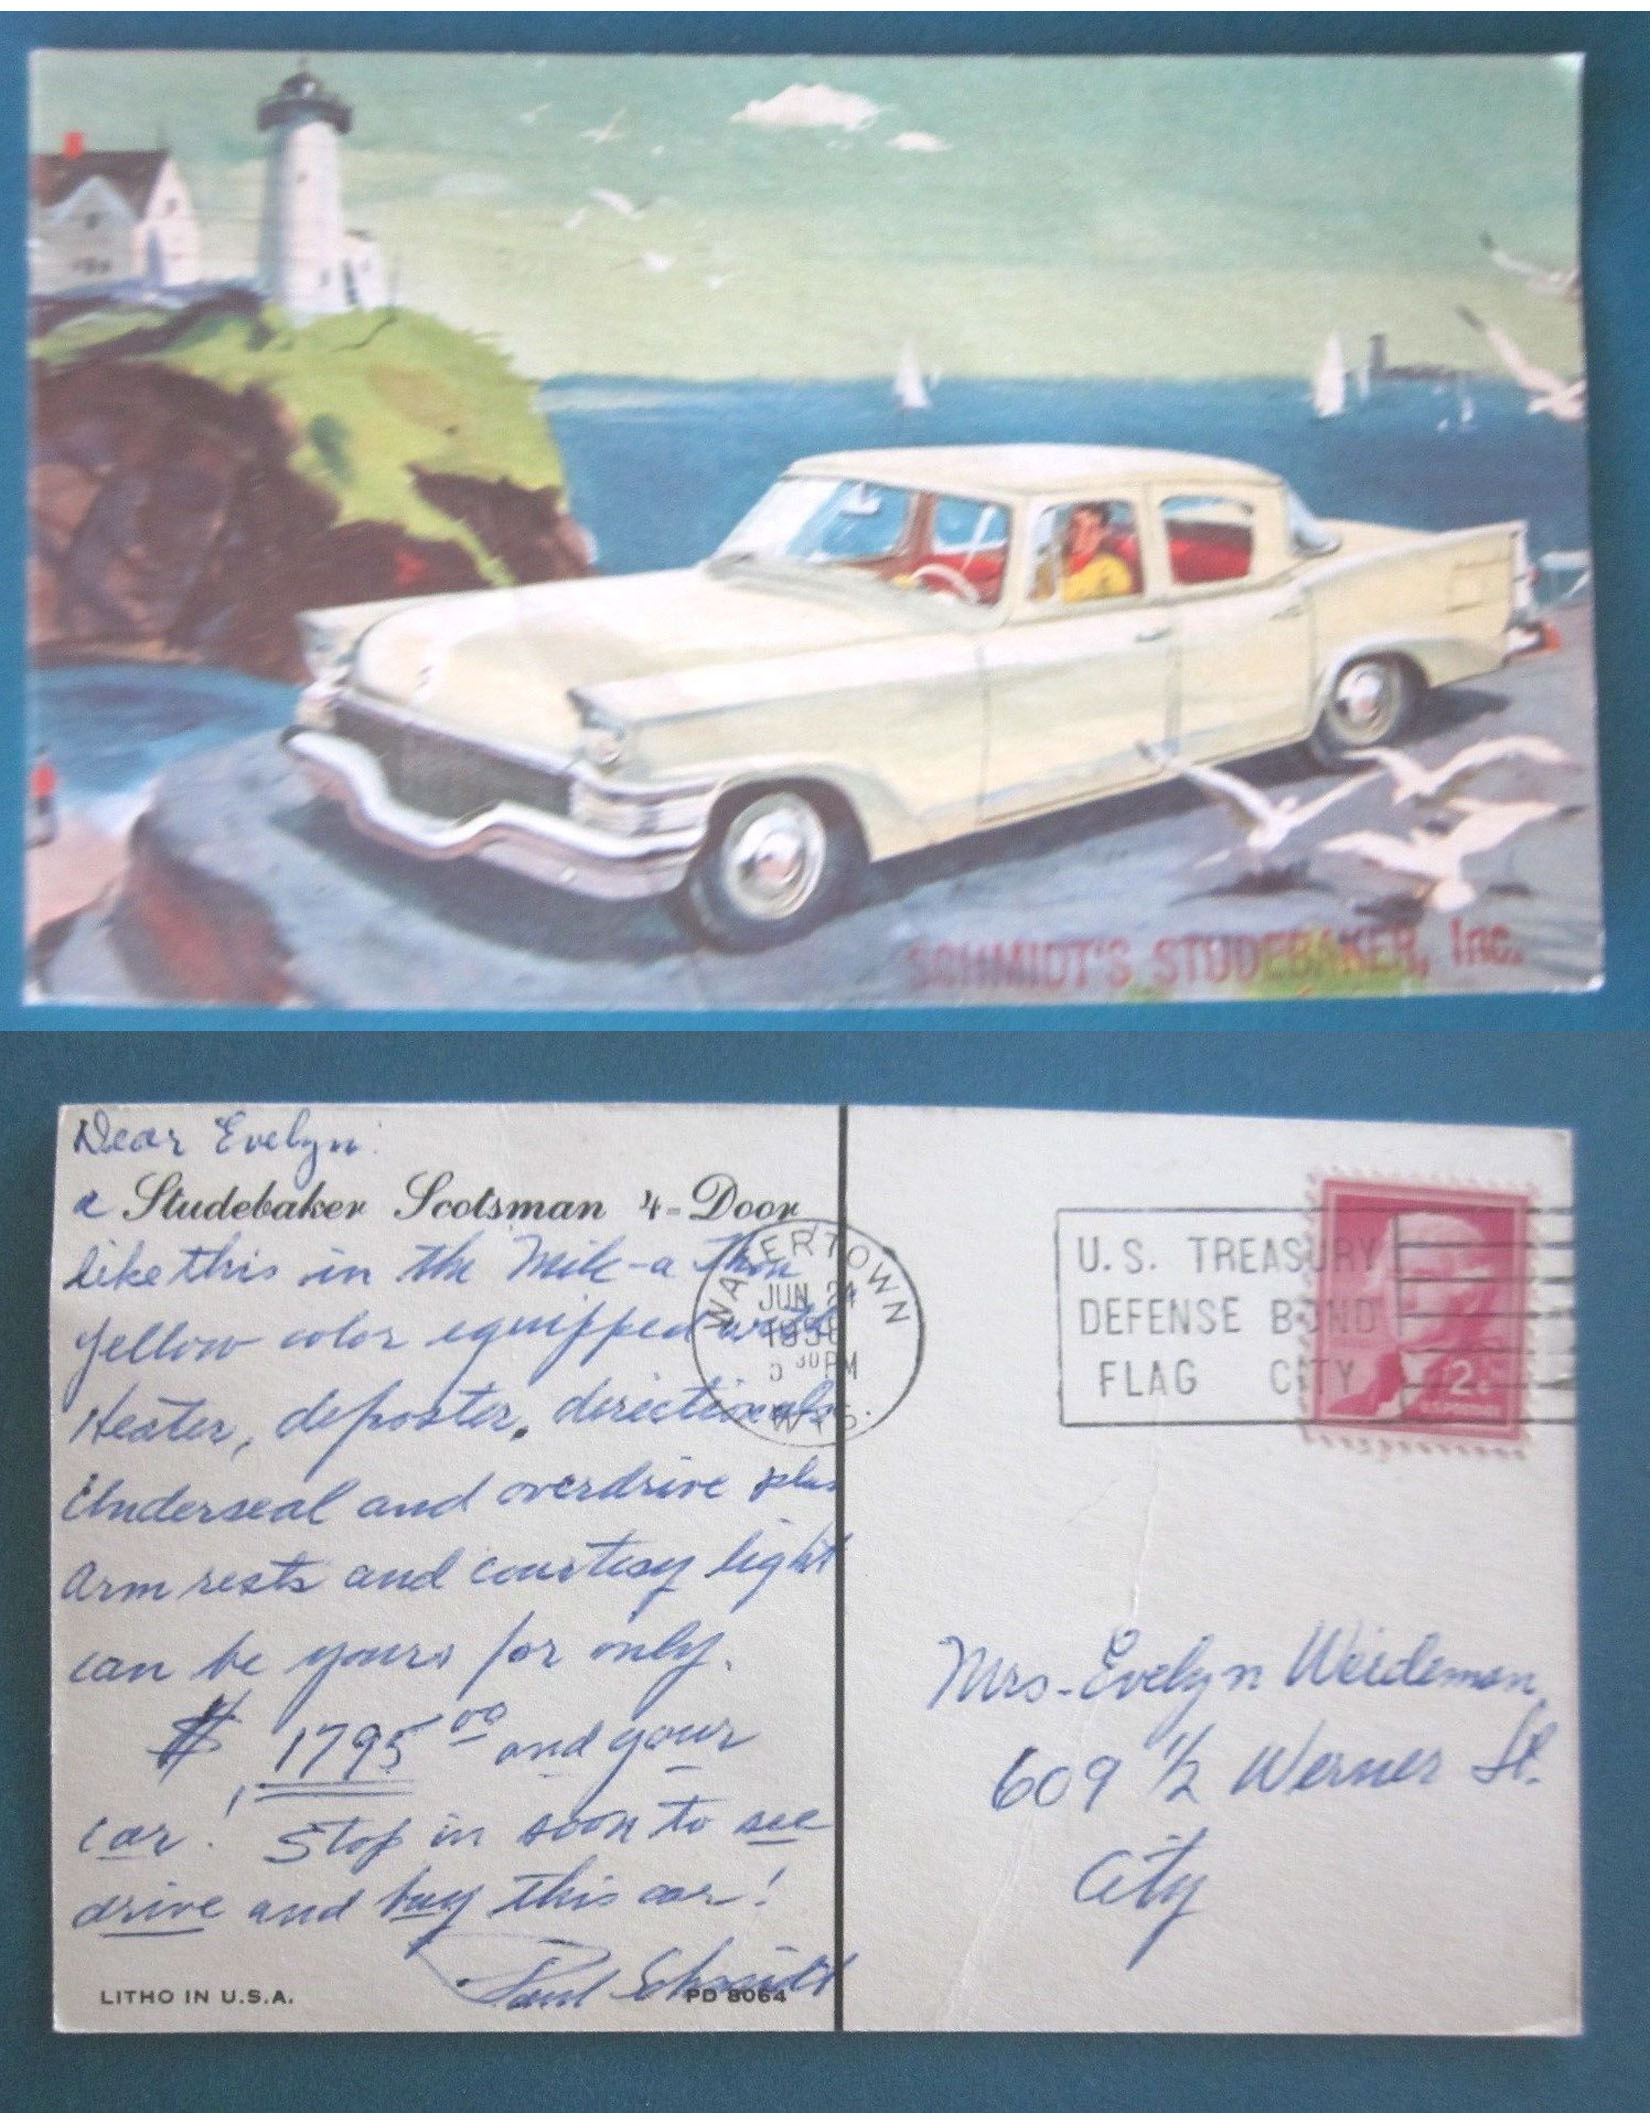 SCHMIDT'S STUDEBAKER, Inc.
Dear Evelyn:
a Studebaker Scotsman 4-Door
like this in the Mile-a Thon
yellow color equipped with
Heater, defroster, directionals
Underseal and overdrive plus
Arm rests and courtesy light
can be yours for only.
$ 1795 00 and your
car! Stop in soon to see
drive and buy this car!
Paul Schmidt
LITHO IN U.S.A.
PD 8064
WATERTOWN
JUN 24
30 PM
WIS.
U.S. TREASURY
DEFENSE BOND
FLAG CITY
2¢
U.S. POSTAGE
Mrs. Evelyn Weideman
609 1/2 Werner St.
City